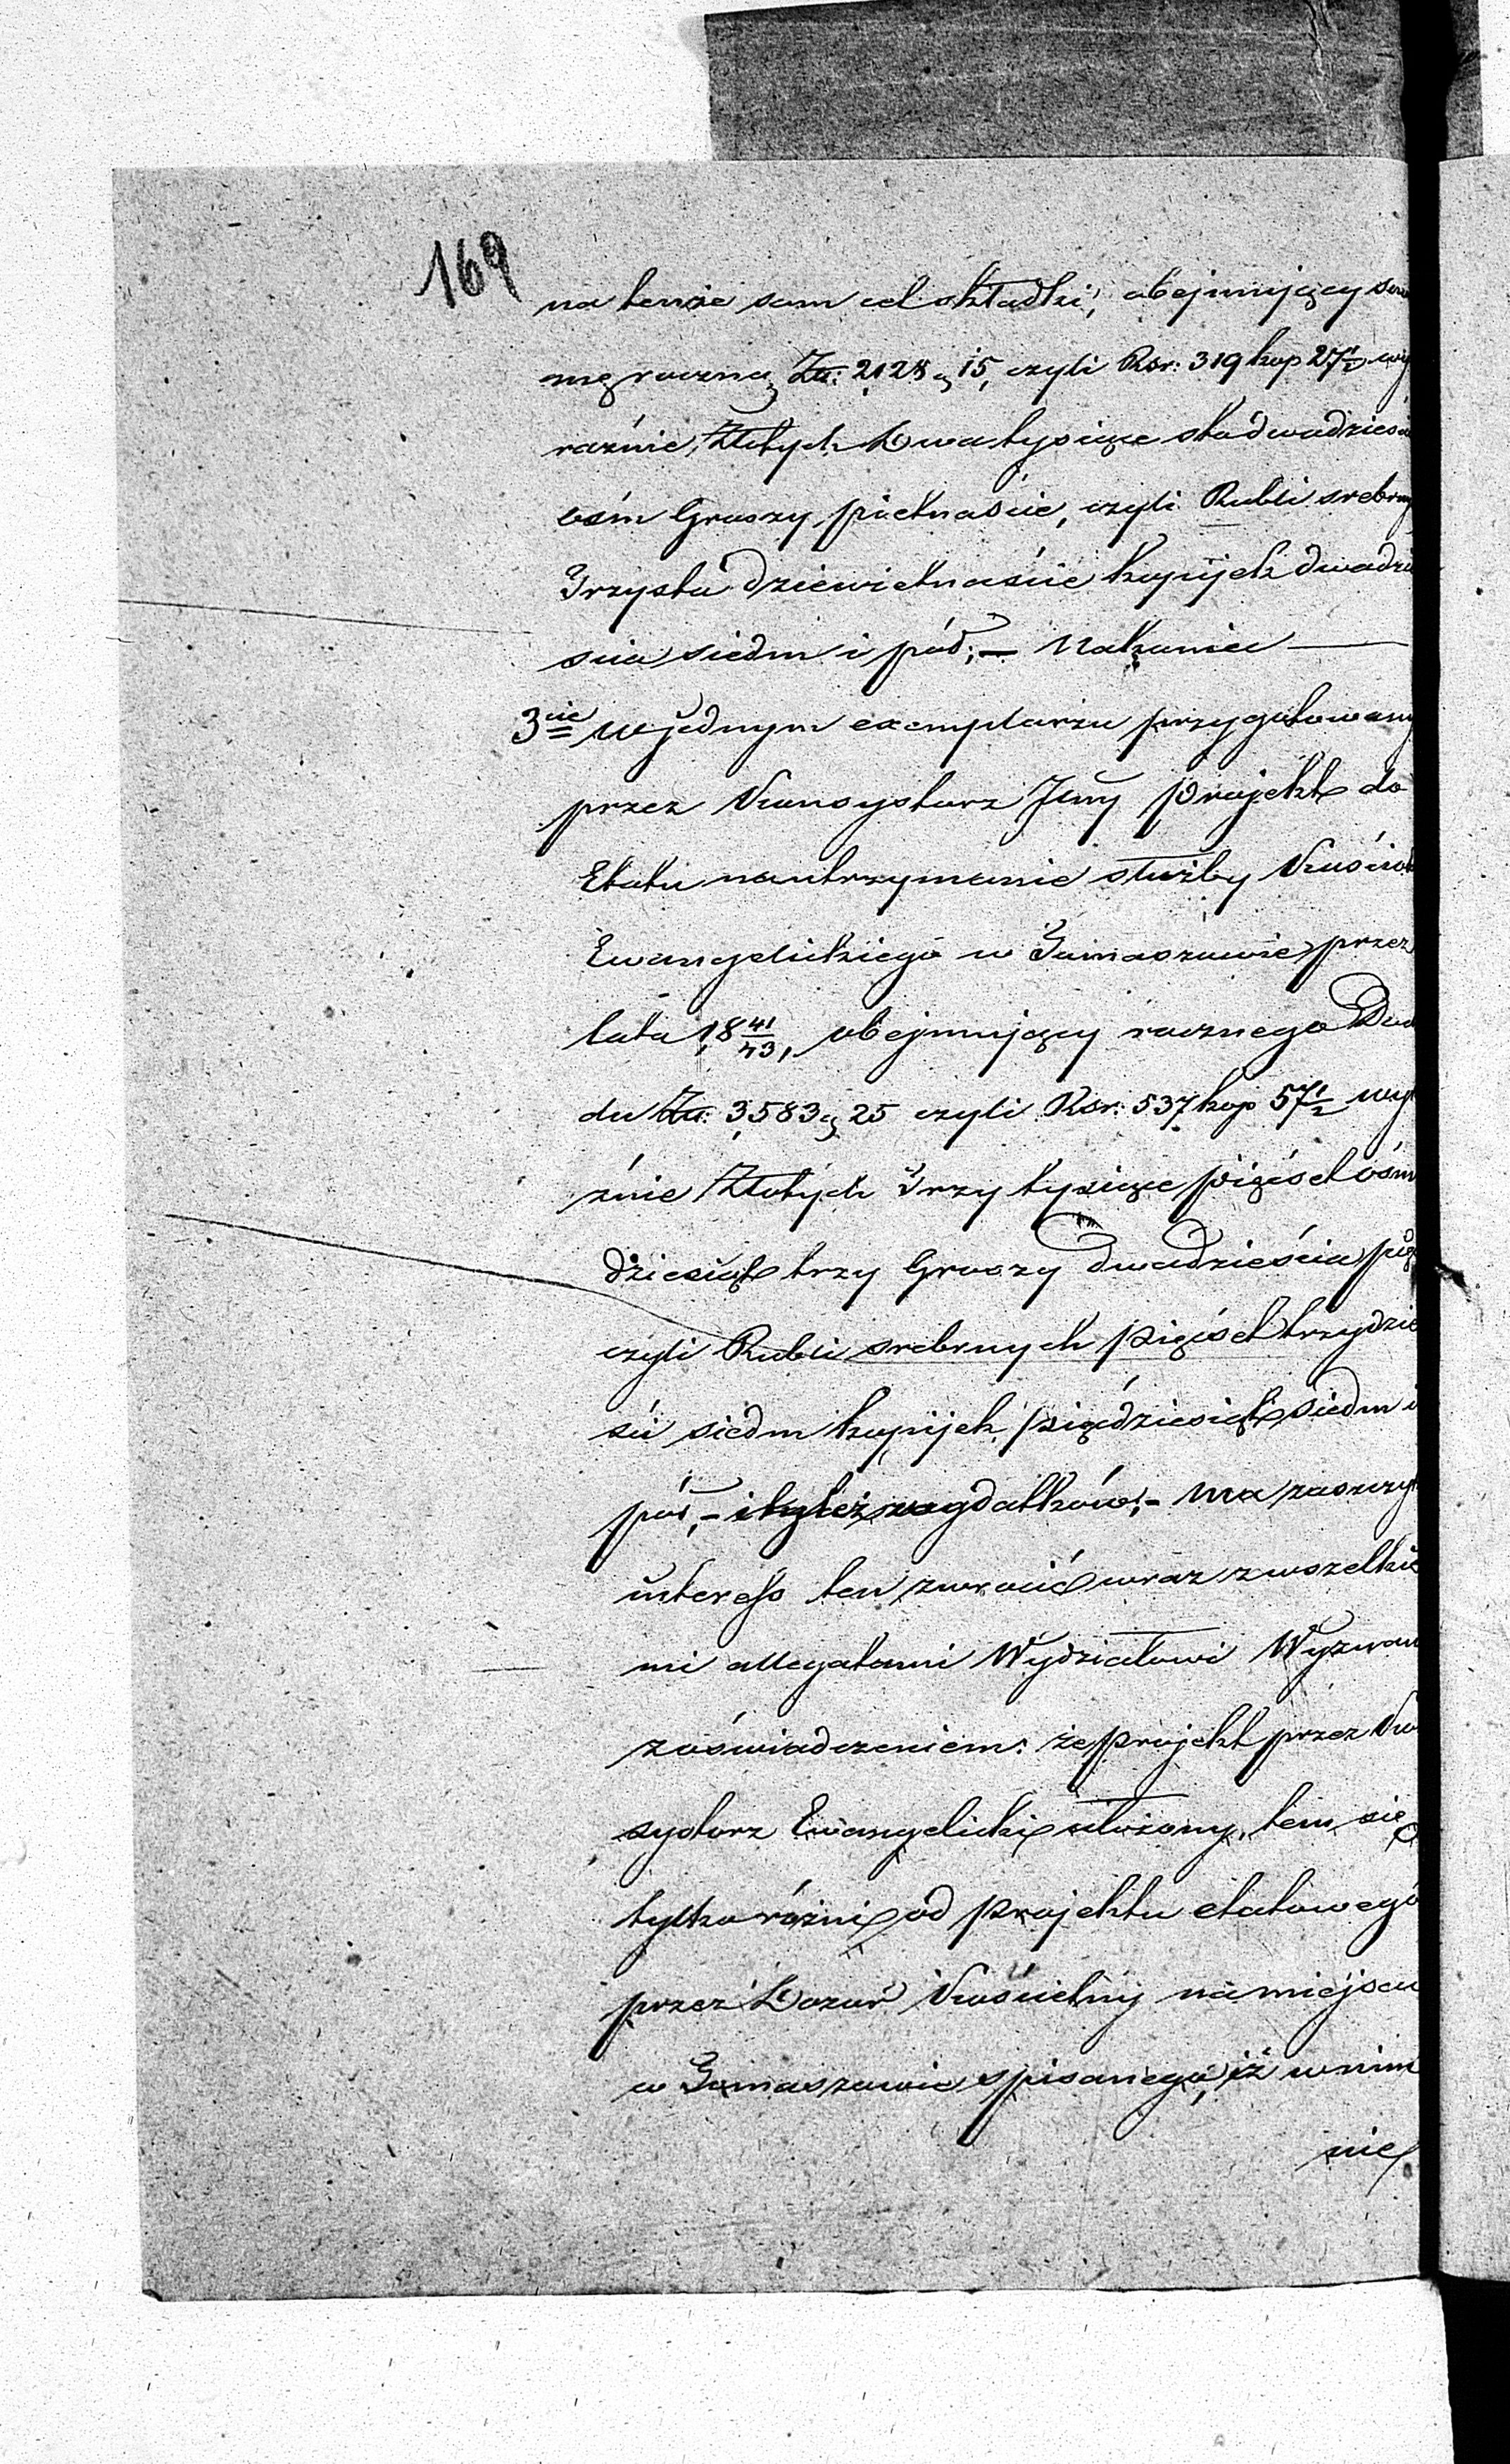 169
na tenże sam cel składki, obejmujący sum
mę roczną Zł: 2128 g 15, czyli Rsr: 319 kop 27½ wy
raźnie, Złotych Dwa tysiące sto dwadzieścia
ośm Groszy piętnaście, czyli Rubli srebrny
Trzysta dziewiętnaście kopijek dwadzie
ścia siedm i pół;— Nakoniec —
3cie w jednym exemplarzu przygotowany
przez Konsystorz Jlny projekt do
Etatu na utrzymanie służby Kościoła
Ewangelickiego w Tomaszowie przez
lata 18 41/43, obejmujący rocznego Docho
du Zł: 3,583 g 25 czyli Rsr: 537 kop 57½ wyr
źnie Złotych Trzy tysiące pięćset ośm
dziesiąt trzy Groszy dwadzieścia pięć
czyli Rubli srebrnych pięćset trzydzie
ści siedm kopijek pięćdziesiąt siedm i
pół,— i tyleż wydatków;— ma zaszczyt
interess ten zwrócić wraz z wszelkie
mi allegatami Wydziałowi Wyznań
z oświadczeniem: że projekt przez Kon
systorz Ewangelicki ułożony, tem się
tylko różni od projektu etatowego
przez Dozór Kościelny na miejscu
w Tomaszowie spisanego, iż w nim
nie